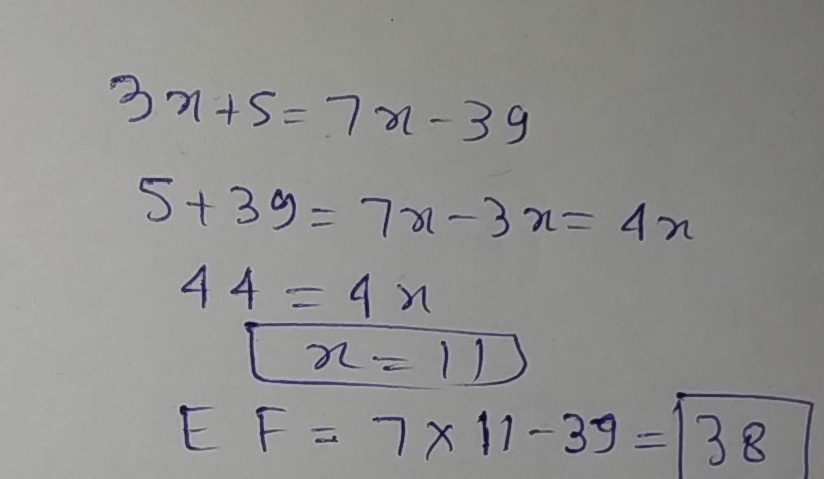 3x+5=7x-39
5+39=7x-3x=4x
44=4x
x=11
EF=7×11-39=38